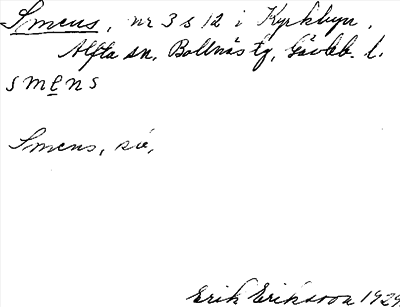 Smens, nr 3 s 12 i Kyrkbyn,
Alfta sn, Bollnäs tg, Gävleb. l.
smens
Smens, så,
Erik Eriksson 1929